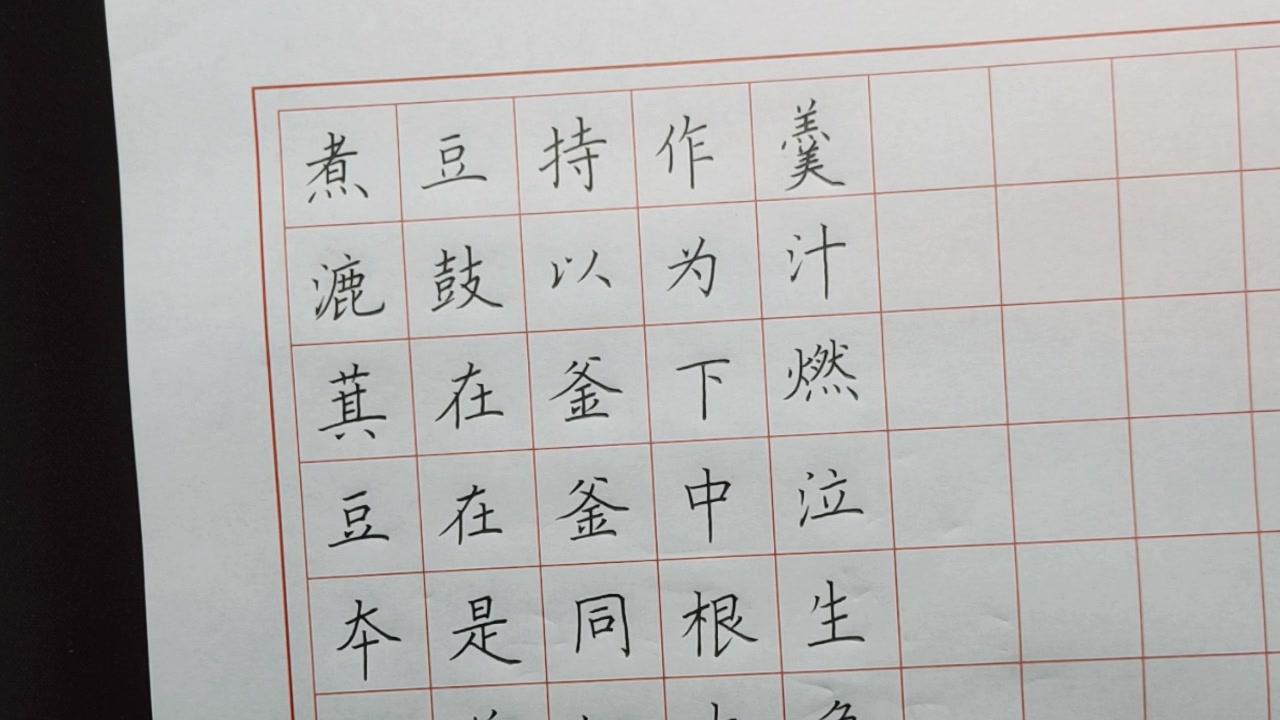 煮豆持作羹
漉鼓以为汁
萁在釜下燃
豆在釜中泣
本是同根生